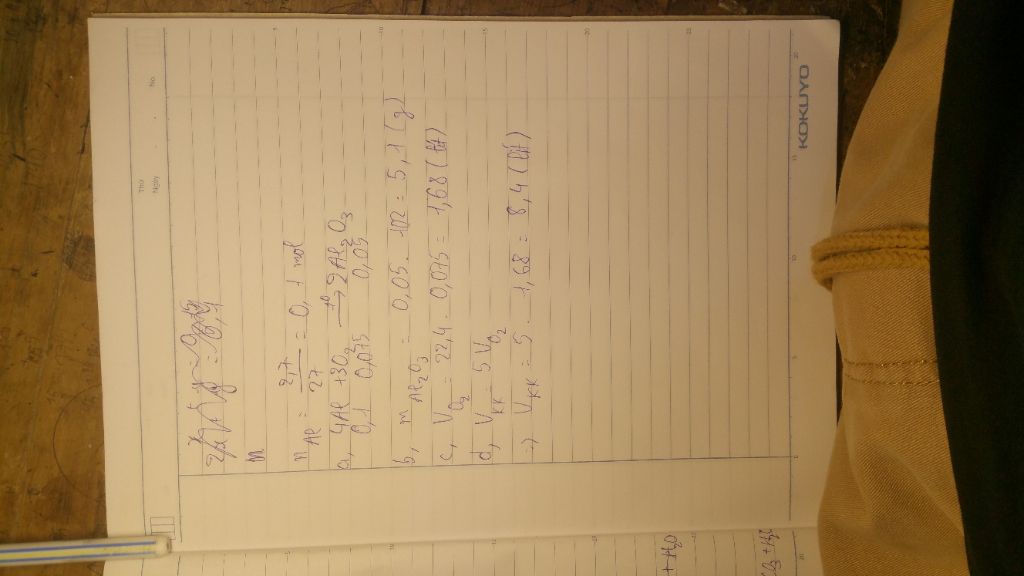 Thứ
Ngày
No.
n
n Al = 2,7 / 27 = 0,1 mol
a, 4Al + 3O2 t° → 2Al2O3
0,1 0,075 0,05
b, m Al2O3 = 0,05 . 102 = 5,1 (g)
c, V O2 = 22,4 . 0,075 = 1,68 (lít)
d, V KK = 5 V O2
=> V KK = 5 . 1,68 = 8,4 (lít)
KOKUYO
+ H2O